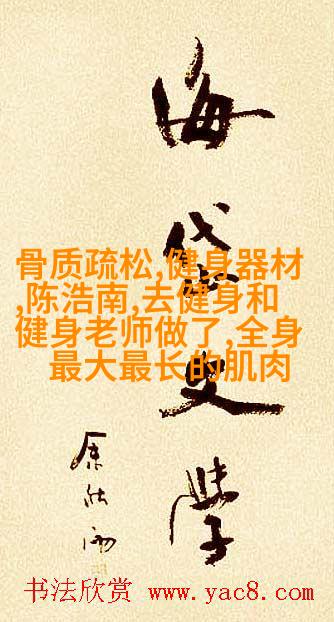 海岱史学
骨质疏松,健身器材
,陈浩南,去健身和
健身老师做了,全身
最大最长的肌肉
书法欣赏 www.yac8.com